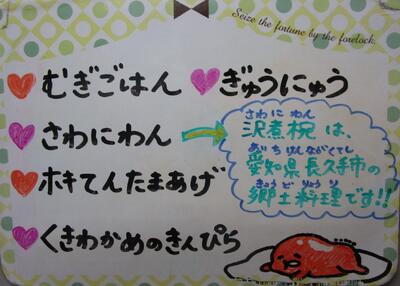 Seize the fortune by the forelock.
むぎごはん ぎゅうにゅう
さわにわん
ホキてんたまあげ
くきわかめのきんぴら
さわに わん
沢煮椀は、
あいちけんながくてし
愛知県長久手市の
きょうどりょうり
郷土料理です!!